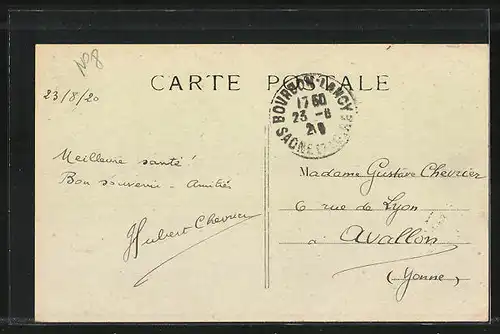 N°8
23/8/20
CARTE POSTALE
BOURBON-LANCY
17 60
23 - 8
20
SAONE-ET-LOIRE
Meilleure santé!
Bon souvenir - Amitiés
Hubert Chevrier
Madame Gustave Chevrier
6 rue de Lyon
à Avallon
(Yonne)